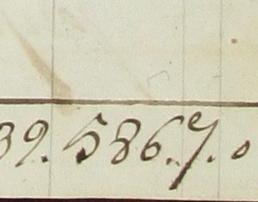 39. 586. 7. 0